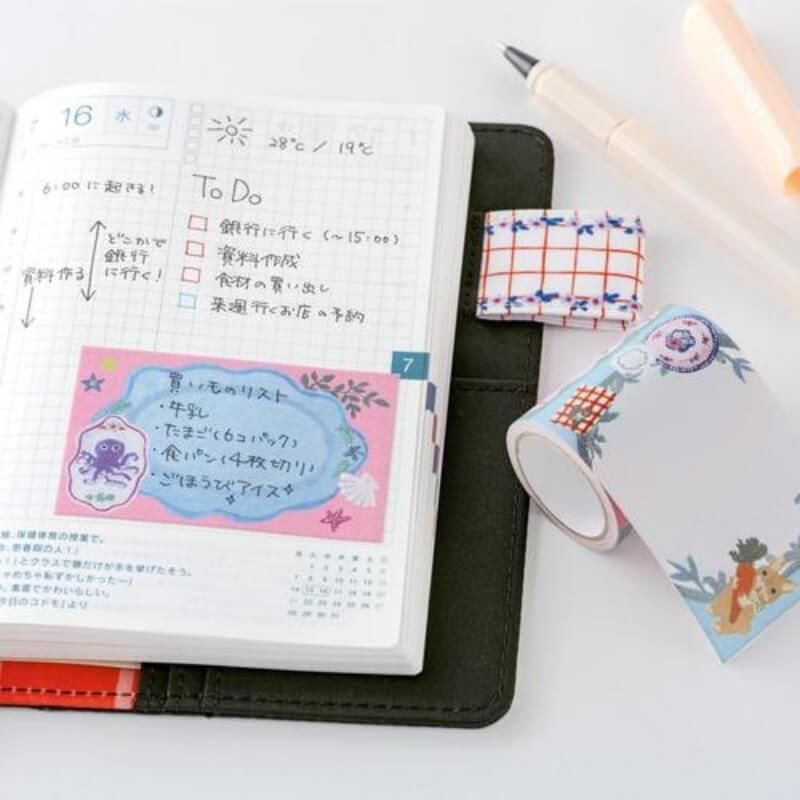 7 16 水
28℃ / 19℃
6:00 に起きる!
To Do
銀行に行く (~15:00)
資料作成
食材の買い出し
来週行くお店の予約
どこかで
銀行
に行く!
資料作る
7
買いものリスト
・牛乳
・たまご(6コパック)
・食パン(4枚切り)
・ごほうびアイス
保健体育の授業で。
思春期の人!」
」とクラスで娘だけが手を挙げたそう。
めちゃ恥ずかしかったー」
素直でかわいらしい。
今日のコドモ』より
月 火 水 木 金 土 日
1 2 3 4 5 6
7 8 9 10 11 12 13
14 15 16 17 18 19 20
21 22 23 24 25 26 27
28 29 30 31